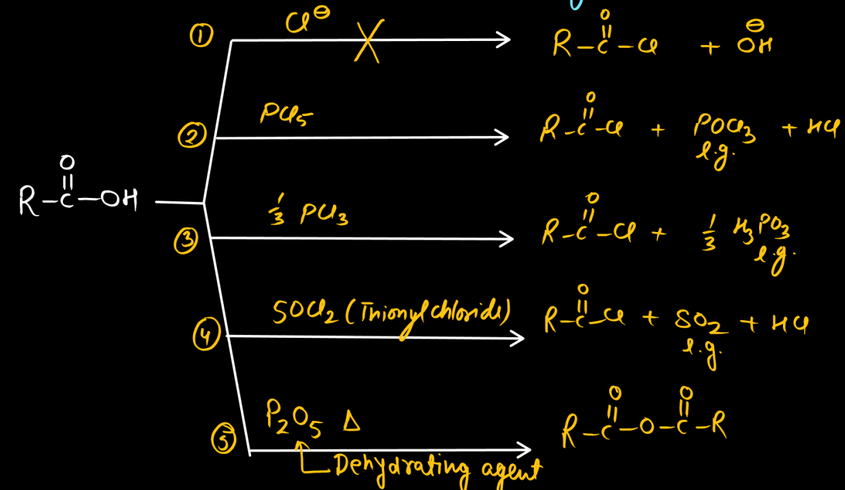 ① Cl⊖ R–C(=O)–Cl + ⊖OH
② PCl₅ R–C(=O)–Cl + POCl₃ + HCl
l.g.
R–C(=O)–OH
③ ⅓ PCl₃ R–C(=O)–Cl + ⅓ H₃PO₃
l.g.
④ SOCl₂ (Thionylchloride) R–C(=O)–Cl + SO₂ + HCl
l.g.
⑤ P₂O₅ Δ R–C(=O)–O–C(=O)–R
Dehydrating agent